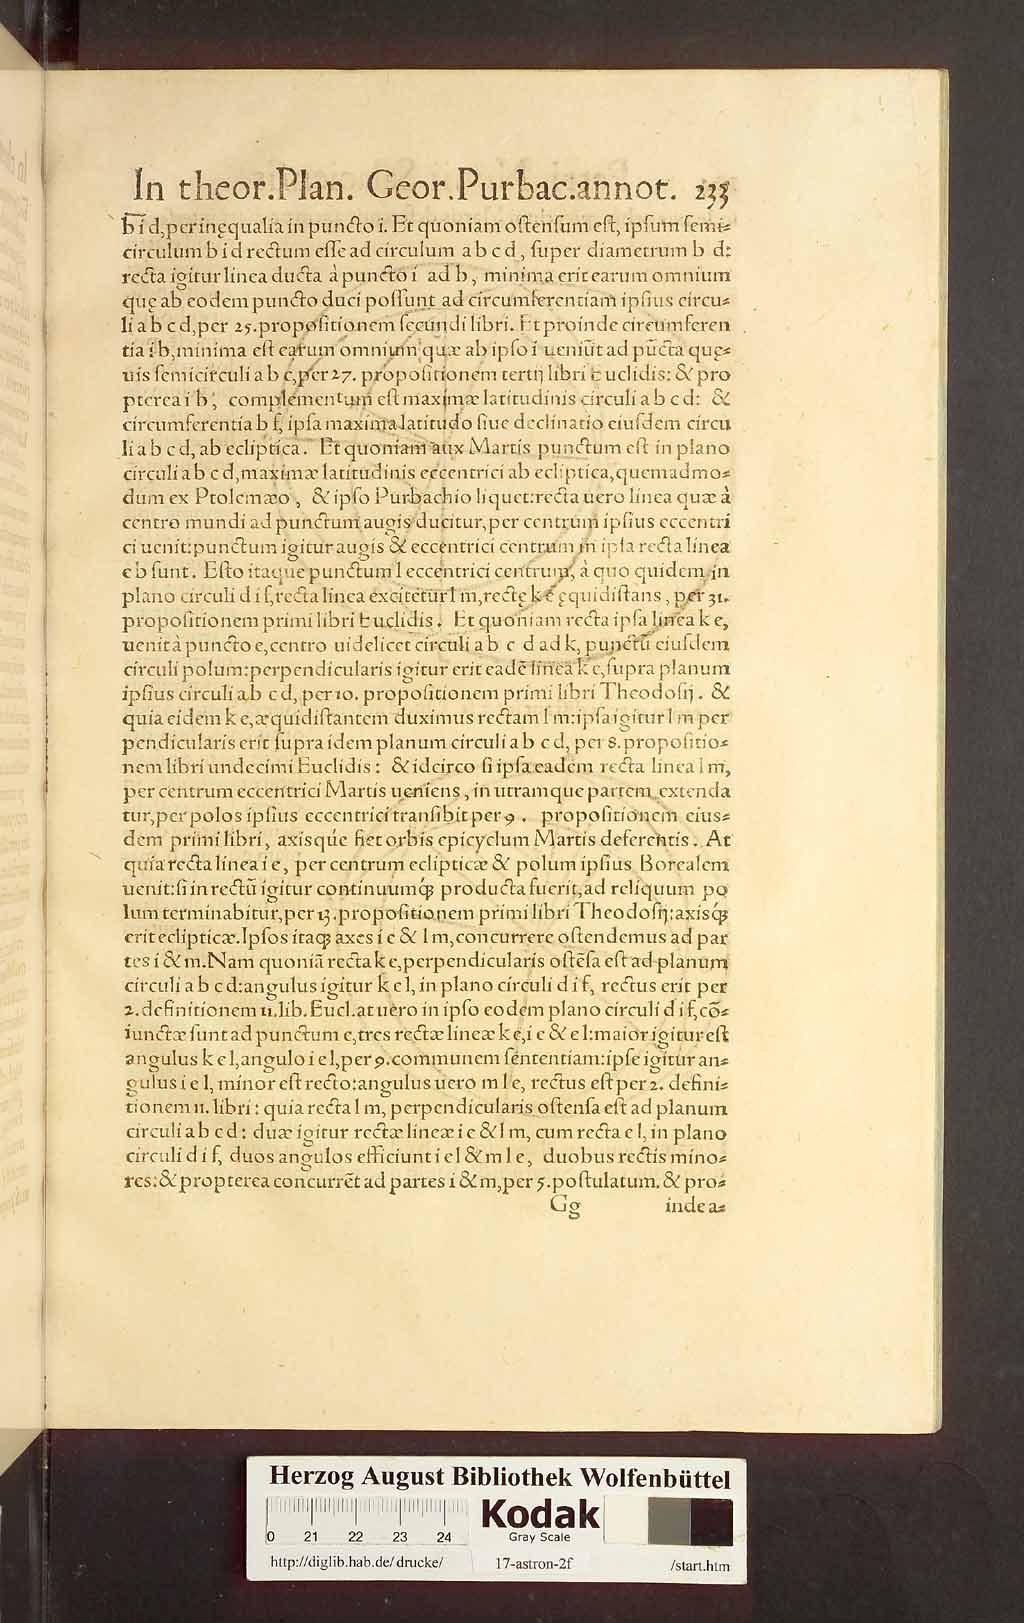 In theor.Plan. Geor.Purbac.annot. 233
b i d,per inęqualia in puncto i. Et quoniam ostensum est, ipsum semi⸗
circulum b i d rectum esse ad circulum a b c d, super diametrum b d:
recta igitur linea ducta à puncto i ad b, minima erit earum omnium
quę ab eodem puncto duci possunt ad circumferentiam ipsius circu⸗
li a b c d,per 25.propositionem secundi libri. Et proinde circumferen
tia i b,minima est earum omnium quæ ab ipso i ueniūt ad pūcta quę⸗
uis semicirculi a b c,per 27. propositionem tertij libri Euclidis: & pro
pterea i b, complementum est maximæ latitudinis circuli a b c d: &
circumferentia b f, ipsa maxima latitudo siue declinatio eiusdem circu
li a b c d, ab ecliptica. Et quoniam aux Martis punctum est in plano
circuli a b c d,maximæ latitudinis eccentrici ab ecliptica,quemadmo⸗
dum ex Ptolemæo, & ipso Purbachio liquet:recta uero linea quæ à
centro mundi ad punctum augis ducitur,per centrum ipsius eccentri
ci uenit:punctum igitur augis & eccentrici centrum in ipsa recta linea
e b sunt. Esto itaque punctum l eccentrici centrum, à quo quidem in
plano circuli d i f,recta linea excitetur l m,rectę k e ęquidistans, per 31.
propositionem primi libri Euclidis. Et quoniam recta ipsa linea k e,
uenit à puncto e,centro uidelicet circuli a b c d ad k, punctū eiusdem
circuli polum:perpendicularis igitur erit eadē linea k e,supra planum
ipsius circuli a b c d, per 10. propositionem primi libri Theodosij. &
quia eidem k e,æquidistantem duximus rectam l m:ipsa igitur l m per
pendicularis erit supra idem planum circuli a b c d, per 8.propositio⸗
nem libri undecimi Euclidis: & idcirco si ipsa eadem recta linea l m,
per centrum eccentrici Martis ueniens, in utramque partem extenda
tur,per polos ipsius eccentrici transibit per 9. propositionem eius⸗
dem primi libri, axisqúe fiet orbis epicyclum Martis deferentis. At
quia recta linea i e, per centrum eclipticæ & polum ipsius Borealem
uenit:si in rectū igitur continuumq́ꝫ producta fuerit,ad reliquum po
lum terminabitur,per 13.propositionem primi libri Theodosij:axisq́ꝫ
erit eclipticæ.Ipsos itaqꝫ axes i e & l m,concurrere ostendemus ad par
tes i & m.Nam quoniā recta k e,perpendicularis ostēsa est ad planum
circuli a b c d:angulus igitur k e l, in plano circuli d i f, rectus erit per
2.definitionem 11.lib.Eucl.at uero in ipso eodem plano circuli d i f,cō⸗
iunctæ sunt ad punctum e,tres rectæ lineæ k e,i e & e l:maior igitur est
angulus k e l,angulo i e l,per 9.communem sententiam:ipse igitur an⸗
gulus i e l, minor est recto:angulus uero m l e, rectus est per 2. defini⸗
tionem 11. libri: quia recta l m, perpendicularis ostensa est ad planum
circuli a b c d: duæ igitur rectæ lineæ i e & l m, cum recta e l, in plano
circuli d i f, duos angulos efficiunt i e l & m l e, duobus rectis mino⸗
res:& propterea concurrēt ad partes i & m,per 5.postulatum.& pro⸗
Gg inde a⸗
Herzog August Bibliothek Wolfenbüttel
0 21 22 23 24
Kodak
Gray Scale
http://diglib.hab.de/drucke/ 17-astron-2f /start.htm